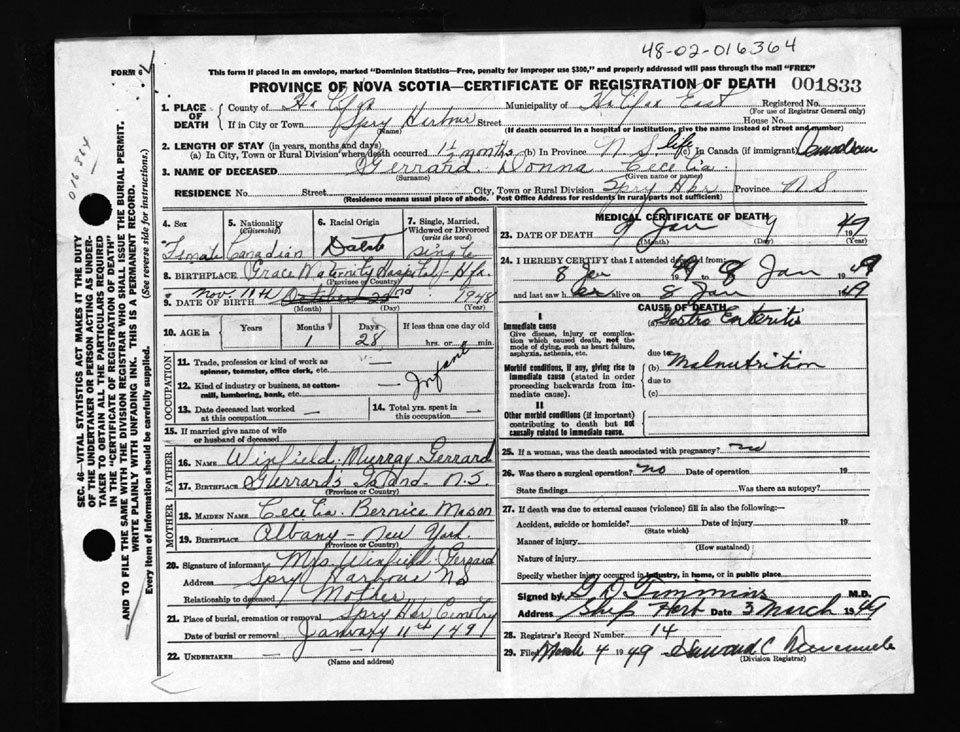 48-02-016364
FORM 6
This form if placed in an envelope, marked "Dominion Statistics—Free, penalty for improper use $300," and properly addressed will pass through the mail "FREE"
PROVINCE OF NOVA SCOTIA—CERTIFICATE OF REGISTRATION OF DEATH 001833
1. PLACE OF DEATH
County of Halifax Municipality of Halifax East Registered No.
(For use of Registrar General only)
If in City or Town Spry Harbour Street House No.
(Name) (If death occurred in a hospital or institution, give the name instead of street and number)
2. LENGTH OF STAY (in years, months and days)
(a) In City, Town or Rural Division where death occurred 1½ months (b) In Province N S life (c) In Canada (if immigrant) Canadian
3. NAME OF DECEASED Gerrard Donna Cecelia
(Surname) (Given name or names)
RESIDENCE No. Street City, Town or Rural Division Spry Hbr Province N S
(Residence means usual place of abode. Post Office Address for residents in rural parts not sufficient)
4. Sex
Female
5. Nationality (Citizenship)
Canadian
6. Racial Origin
7. Single, Married, Widowed or Divorced (write the word)
single
8. BIRTHPLACE Grace Maternity Hospital Hfx.
(Province or Country)
9. DATE OF BIRTH Nov. 11th October 22nd 1948
(Month) (Day) (Year)
10. AGE in Years Months Days If less than one day old
1 28 hrs. or min.
OCCUPATION
11. Trade, profession or kind of work as spinner, teamster, office clerk, etc. —
12. Kind of industry or business, as cotton-mill, lumbering, bank, etc. — Infant
13. Date deceased last worked at this occupation —
14. Total yrs. spent in this occupation —
15. If married give name of wife or husband of deceased
FATHER
16. NAME Winfield Murray Gerrard
17. BIRTHPLACE Gerrard's Island N.S.
(Province or Country)
MOTHER
18. MAIDEN NAME Cecelia Bernice Mason
19. BIRTHPLACE Albany - New York.
(Province or Country)
20. Signature of informant Mrs Winfield Gerrard
Address Spry Harbour N S
Relationship to deceased Mother
21. Place of burial, cremation or removal Spry Hbr Cemetry
Date of burial or removal January 11th 1949
22. UNDERTAKER —
(Name and address)
MEDICAL CERTIFICATE OF DEATH
23. DATE OF DEATH 9 Jan 9 1949
(Month) (Day) (Year)
24. I HEREBY CERTIFY that I attended deceased from:
8 Jan 49 to 8 Jan 1949
and last saw her alive on 8 Jan 1949
CAUSE OF DEATH
I
Immediate cause
Give disease, injury or complication which caused death, not the mode of dying, such as heart failure, asphyxia, asthenia, etc.
(a) Gastro Enteritis
due to
Morbid conditions, if any, giving rise to immediate cause (stated in order proceeding backwards from immediate cause).
(b) Malnutrition
due to
(c)
II
Other morbid conditions (if important) contributing to death but not causally related to immediate cause.
25. If a woman, was the death associated with pregnancy? no
26. Was there a surgical operation? no Date of operation 19
State findings Was there an autopsy?
27. If death was due to external causes (violence) fill in also the following:—
Accident, suicide or homicide? Date of injury 19
(State which)
Manner of injury
(How sustained)
Nature of injury
Specify whether injury occurred in industry, in home, or in public place
Signed by G D Timmins M.D.
Address Ship Harb Date 3 March 1949
28. Registrar's Record Number 14
29. Filed March 4 1949
(Division Registrar)
016364
SEC. 46—VITAL STATISTICS ACT MAKES IT THE DUTY OF THE UNDERTAKER OR PERSON ACTING AS UNDERTAKER TO OBTAIN ALL THE PARTICULARS REQUIRED IN THE "CERTIFICATE OF REGISTRATION OF DEATH" AND TO FILE THE SAME WITH THE DIVISION REGISTRAR WHO SHALL ISSUE THE BURIAL PERMIT.
WRITE PLAINLY WITH UNFADING INK. THIS IS A PERMANENT RECORD.
Every item of information should be carefully supplied. (See reverse side for instructions.)